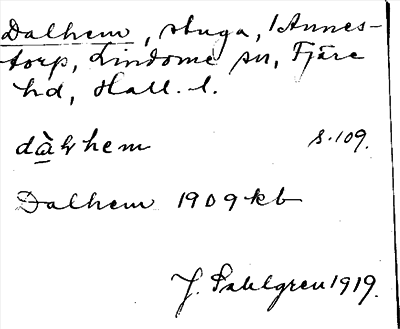 Dalhem, stuga, 1 Annes-
torp, Lindome sn, Fjäre
hd, Hall. l.
dàlhem s. 109.
Dalhem 1909 kb
J. Sahlgren 1919.